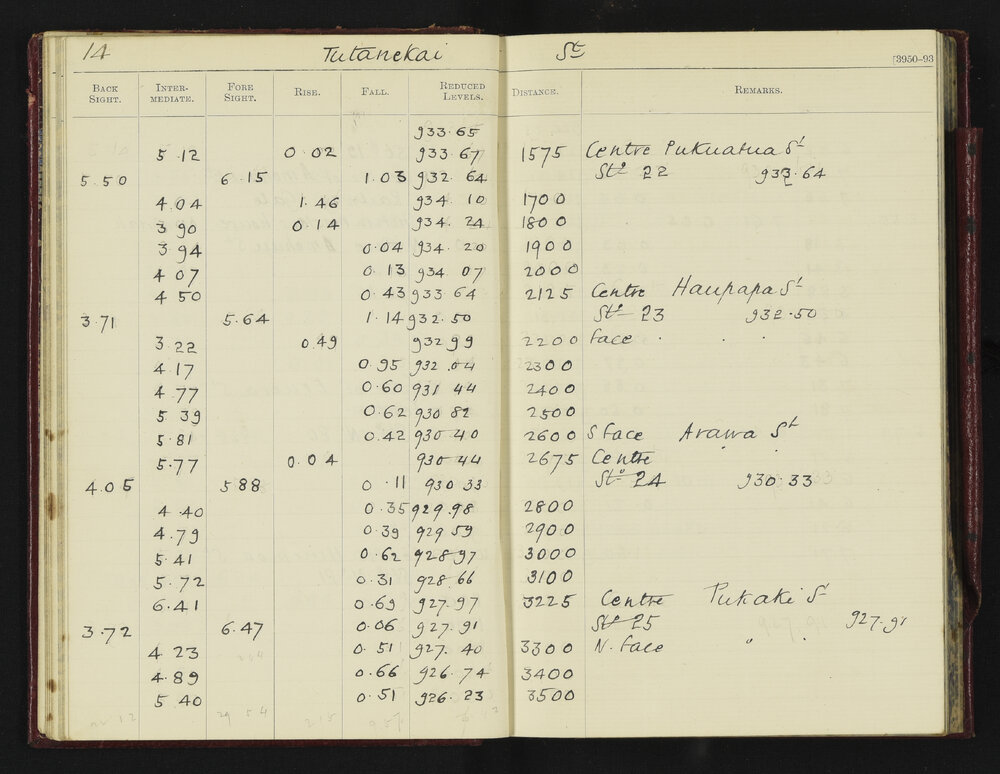 14 Tutanekai St
[3950–93
BACK SIGHT. INTER-MEDIATE. FORE SIGHT. RISE. FALL. REDUCED LEVELS. DISTANCE. REMARKS.
933.65
5.12 0.02 933.67 1575 Centre Pukuatua St
5.50 6.15 1.03 932.64 Stn 22 932.64
4.04 1.46 934 10 1700
3 90 0.14 934.24 1800
3 94 0.04 934.20 1900
4 07 0.13 934 07 2000
4 50 0.43 933 64 2125 Centre Haupapa St
3.71 5.64 1.14 932.50 Stn 23 932.50
3.22 0.49 932 99 2200 face
4.17 0.95 932.04 2300
4.77 0.60 931 44 2400
5.39 0.62 930 82 2500
5.81 0.42 930 40 2600 S face Arawa St
5.77 0.04 930 44 2675 Centre " "
4.05 5 88 0.11 930 33 Stn 24 930.33
4.40 0.35 929.98 2800
4.79 0.39 929 59 2900
5.41 0.62 928.97 3000
5.72 0.31 928.66 3100
6.41 0.69 927.97 3225 Centre Pukaki St
3.72 6.47 0.06 927.91 Stn 25 927.91
4 23 0.51 927.40 3300 N. face " "
4.89 0.66 926.74 3400
5 40 0.51 926.23 3500